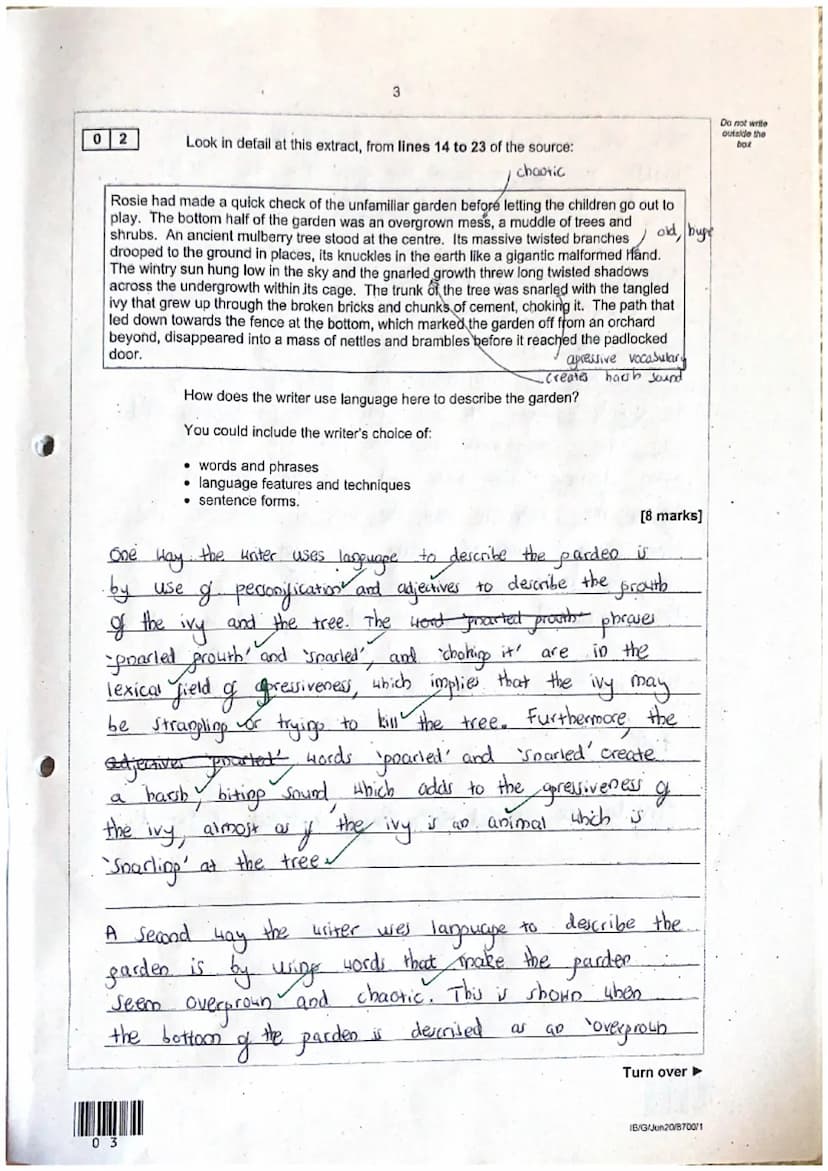 3
Do not write
outside the
box
0 2
Look in detail at this extract, from lines 14 to 23 of the source:
chaotic
Rosie had made a quick check of the unfamiliar garden before letting the children go out to
play. The bottom half of the garden was an overgrown mess, a muddle of trees and
shrubs. An ancient mulberry tree stood at the centre. Its massive twisted branches
old, huge
drooped to the ground in places, its knuckles in the earth like a gigantic malformed hand.
The wintry sun hung low in the sky and the gnarled growth threw long twisted shadows
across the undergrowth within its cage. The trunk of the tree was snarled with the tangled
ivy that grew up through the broken bricks and chunks of cement, choking it. The path that
led down towards the fence at the bottom, which marked the garden off from an orchard
beyond, disappeared into a mass of nettles and brambles before it reached the padlocked
door.
agressive vocabulary
creates harsh sound
How does the writer use language here to describe the garden?
You could include the writer's choice of:
• words and phrases
• language features and techniques
• sentence forms.
[8 marks]
One way the writer uses language to describe the garden is
by use of personification and adjectives to describe the growth
of the ivy and the tree. The word 'gnarled growth' phrases
'gnarled growth' and 'snarled', and 'choking it' are in the
lexical field of agressiveness, which implies that the ivy may
be strangling or trying to kill the tree. Furthermore, the
adjectives 'gnarled' words 'gnarled' and 'snarled' create
a harsh, biting sound, which adds to the agressiveness of
the ivy, almost as if the ivy is an animal which is
'snarling' at the tree.
A second way the writer uses language to describe the
garden is by using words that make the garden
seem overgrown and chaotic. This is shown when
the bottom of the garden is described as an 'overgrown
Turn over ►
0 3
IB/G/Jun20/8700/1